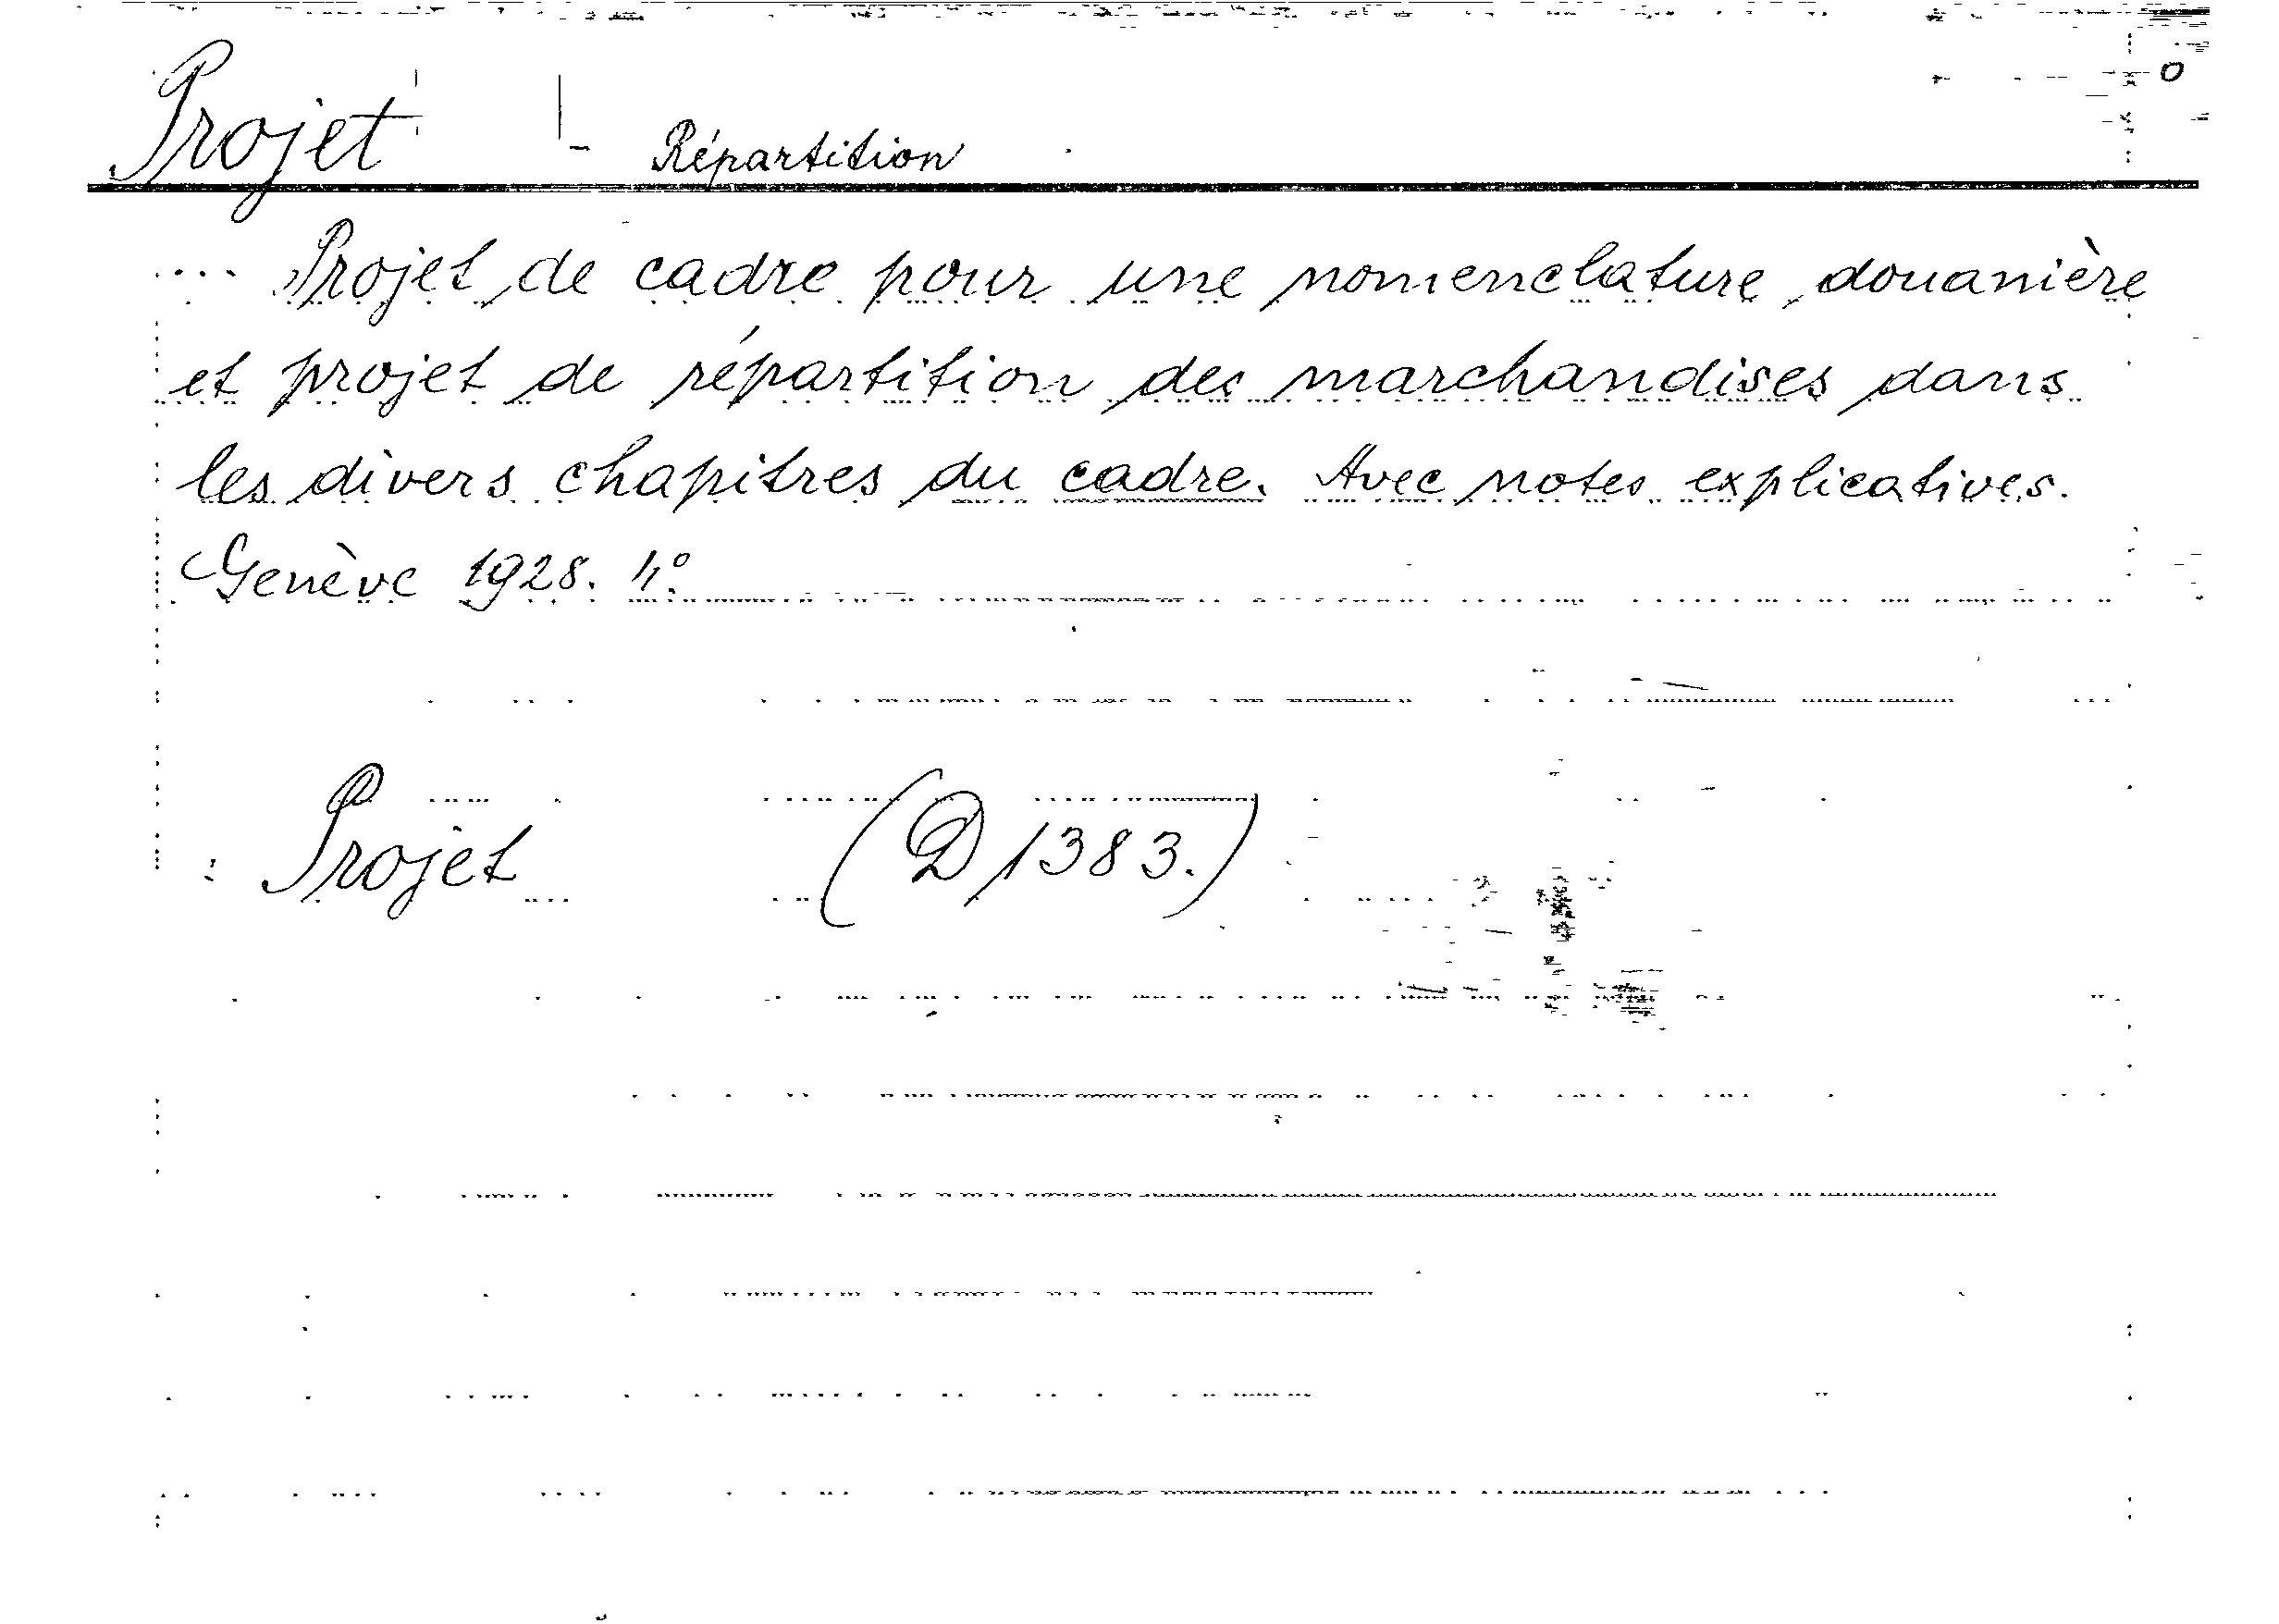 Projet - Répartition
... Projet de cadre pour une nomenclature douanière
et projet de répartition des marchandises dans
les divers chapitres du cadre. Avec notes explicatives.
Genève 1928. 4°.
Projet (D 1383.)